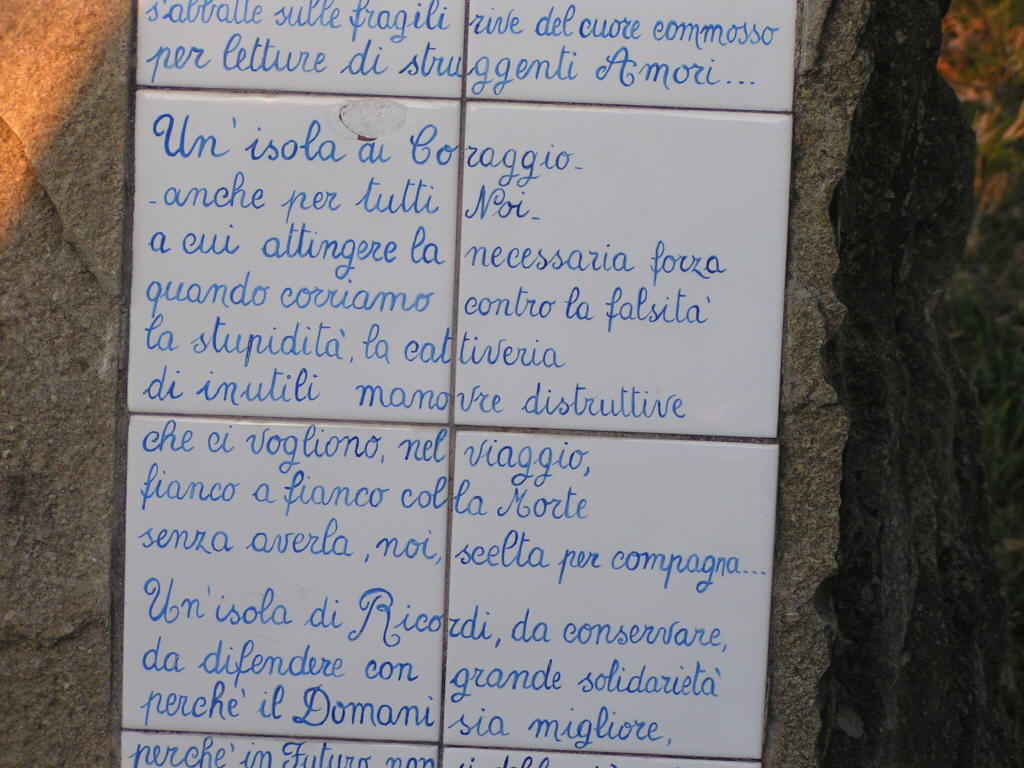 s'abbatte sulle fragili rive del cuore commosso
per letture di struggenti Amori...
Un'isola di Coraggio-
-anche per tutti Noi-
a cui attingere la necessaria forza
quando corriamo contro la falsità
la stupidità, la cattiveria
di inutili manovre distruttive
che ci vogliono, nel viaggio,
fianco a fianco colla Morte
senza averla, noi, scelta per compagna...
Un'isola di Ricordi, da conservare,
da difendere con grande solidarietà
perché il Domani sia migliore,
perché in Futuro non